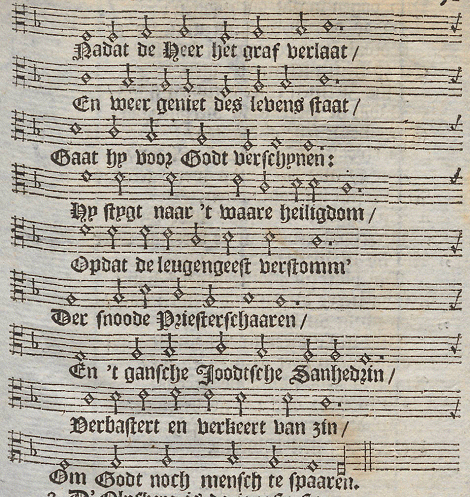 Nadat de Heer het graf verlaat /
En weer geniet des levens staat /
Gaat hy voor Godt verschynen:
Hy stygt naar 't waare heiligdom /
Opdat de leugengeest verstomm'
Der snoode Priesterschaaren /
En 't gansche Joodtsche Sanhedrin /
Verbastert en verkeert van zin /
Om Godt noch mensch te spaaren.